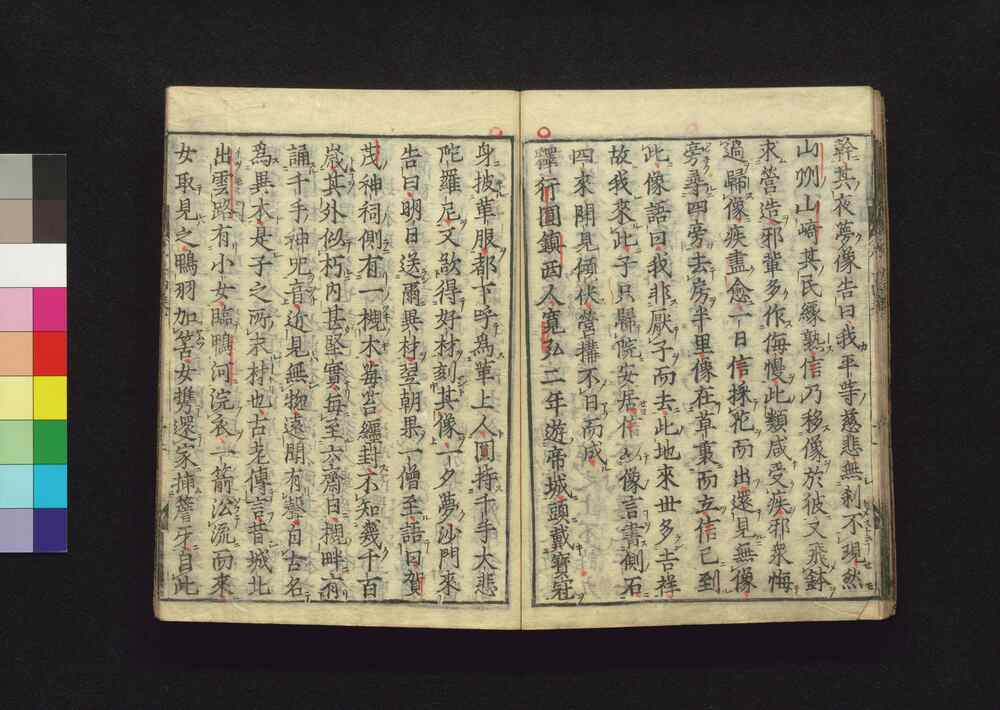 幹其夜夢像告曰我平等慈悲無刹不現然
山州山崎其民緣熟信乃移像於彼又飛鉢
求營造邪輩多作侮慢此類咸受疾邪衆悔
過歸像疾盡愈一日信採花而出還見無像
旁尋四旁去房半里像在草裏而立信已到
此像語曰我非厭子而去此地來世多吉祥
故我來此子只歸院安居信以像言書側石
四來聞見傾伏營搆不日而成
釋行圓鎭西人寬弘二年遊帝城頭戴寶冠
身披革服都下呼爲革上人圓持千手大悲
陀羅尼又欲得好材刻其像一夕夢沙門來
告曰明日送爾異材翌朝果一僧至語曰賀
茂神祠側有一槻木莓苔纒封不知幾千百
歲其外似朽內甚堅實每至六齋日槻畔有
誦千手神咒音近見無物遠聞有聲自古名
爲異木是子之所求材也古老傳言昔城北
出雲路有小女臨鴨河浣衣一箭泛流而來
女取見之鴨羽加筈女携還家插簷牙自此